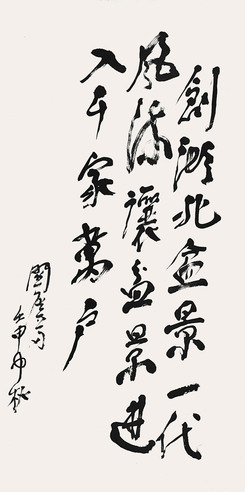 創浙北盆景一代
風流 讓盆景進
入千家萬戶
壬申